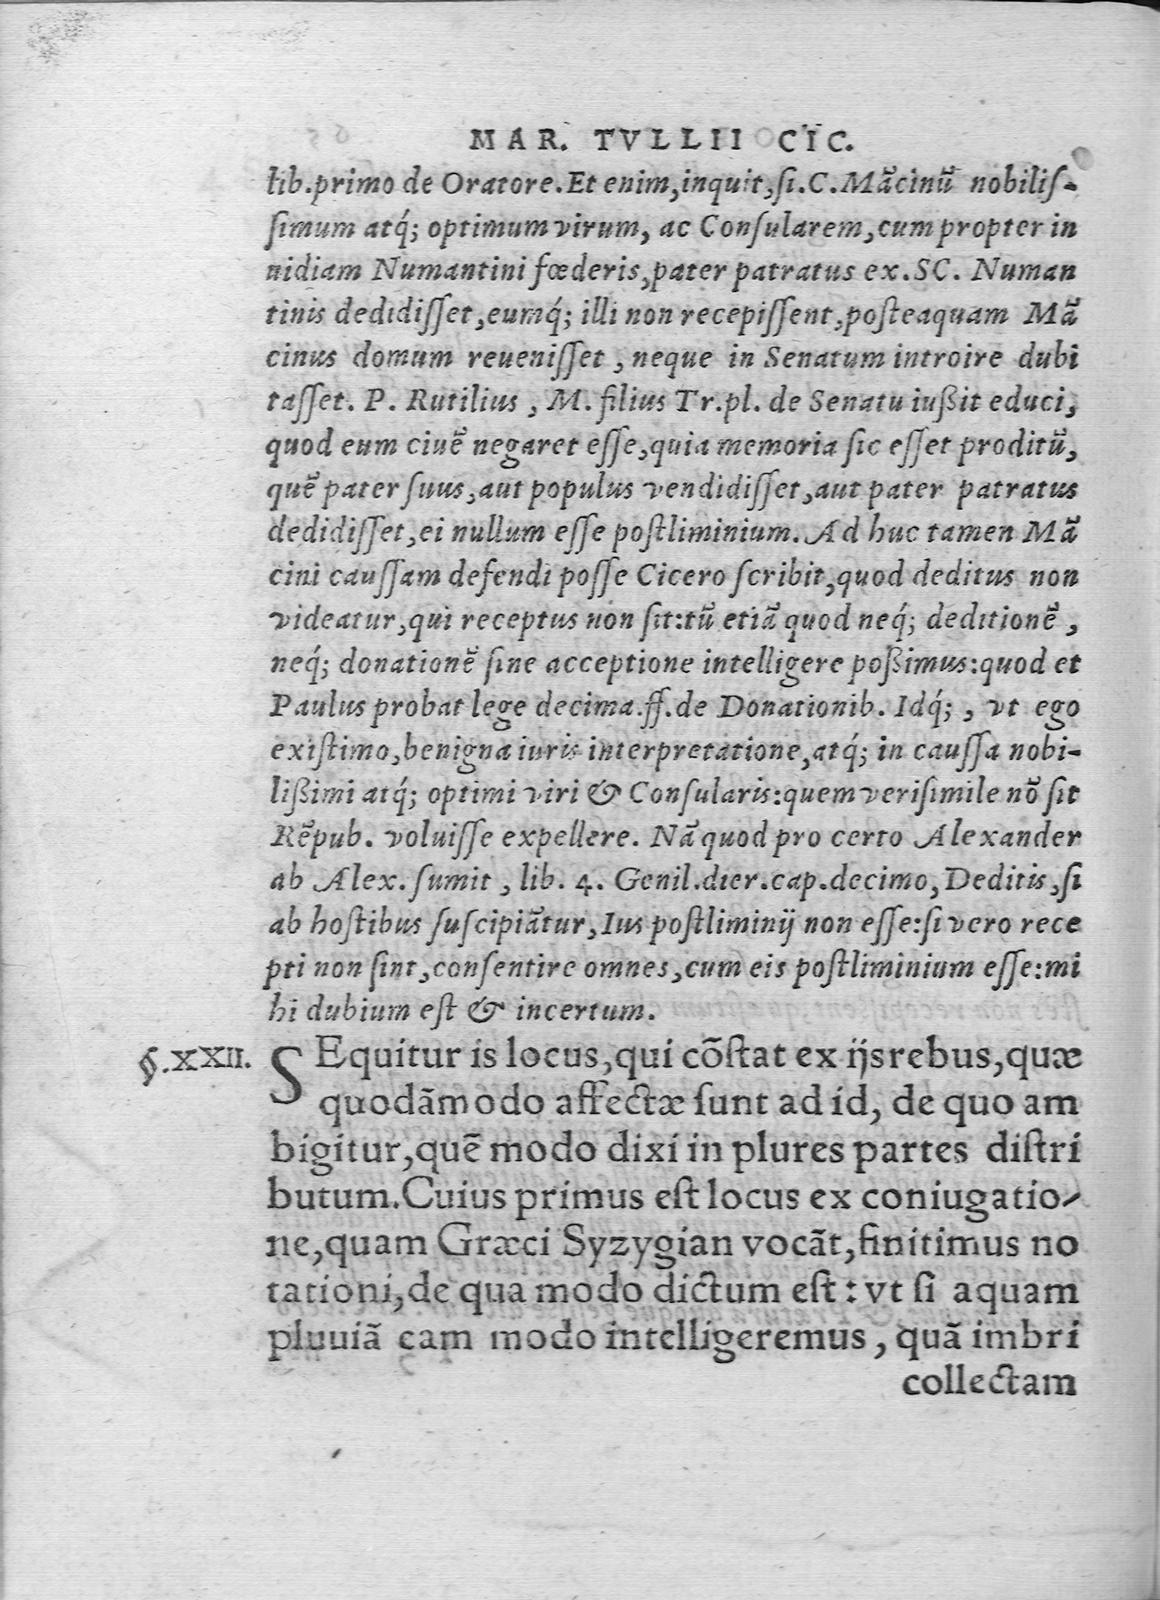 MAR. TVLLII CIC.
lib.primo de Oratore.Et enim,inquit,ſi.C.Mācinū nobiliſ-
ſimum atq́; optimum virum, ac Conſularem,cum propter in
uidiam Numantini fœderis,pater patratus ex.SC. Numan
tinis dedidiſſet,eumq́; illi non recepiſſent,poſteaquam Mā
cinus domum reueniſſet , neque in Senatum introire dubi
taſſet. P. Rutilius , M. filius Tr.pl. de Senatu iußit educi,
quod eum ciuē negaret eſſe,quia memoria ſic eſſet proditū,
quē pater ſuus,aut populus vendidiſſet,aut pater patratus
dedidiſſet,ei nullum eſſe poſtliminium. Ad huc tamen Mā
cini cauſſam defendi poſſe Cicero ſcribit,quod deditus non
videatur,qui receptus non ſit:tū etiā quod neq́; deditionē ,
neq́; donationē ſine acceptione intelligere poßimus:quod et
Paulus probat lege decima.ff.de Donationib. Idq́; , vt ego
exiſtimo,benigna iuris interpretatione,atq́; in cauſſa nobi-
lißimi atq́; optimi viri & Conſularis:quem veriſimile nō ſit
Rēpub. voluiſſe expellere. Nā quod pro certo Alexander
ab Alex. ſumit , lib. 4. Genil.dier.cap.decimo, Deditis,ſi
ab hoſtibus ſuſcipiātur, Ius poſtliminij non eſſe:ſi vero rece
pti non ſint,conſentire omnes,cum eis poſtliminium eſſe:mi
hi dubium eſt & incertum.
§.XXII. SEquitur is locus,qui cōſtat ex ijsrebus,quæ
quodāmodo affectæ ſunt ad id, de quo am
bigitur,quē modo dixi in plures partes diſtri
butum.Cuius primus eſt locus ex coniugatio-
ne,quam Græci Syzygian vocāt,finitimus no
tationi,de qua modo dictum eſt : vt ſi aquam
pluuiā eam modo intelligeremus , quā imbri
collectam